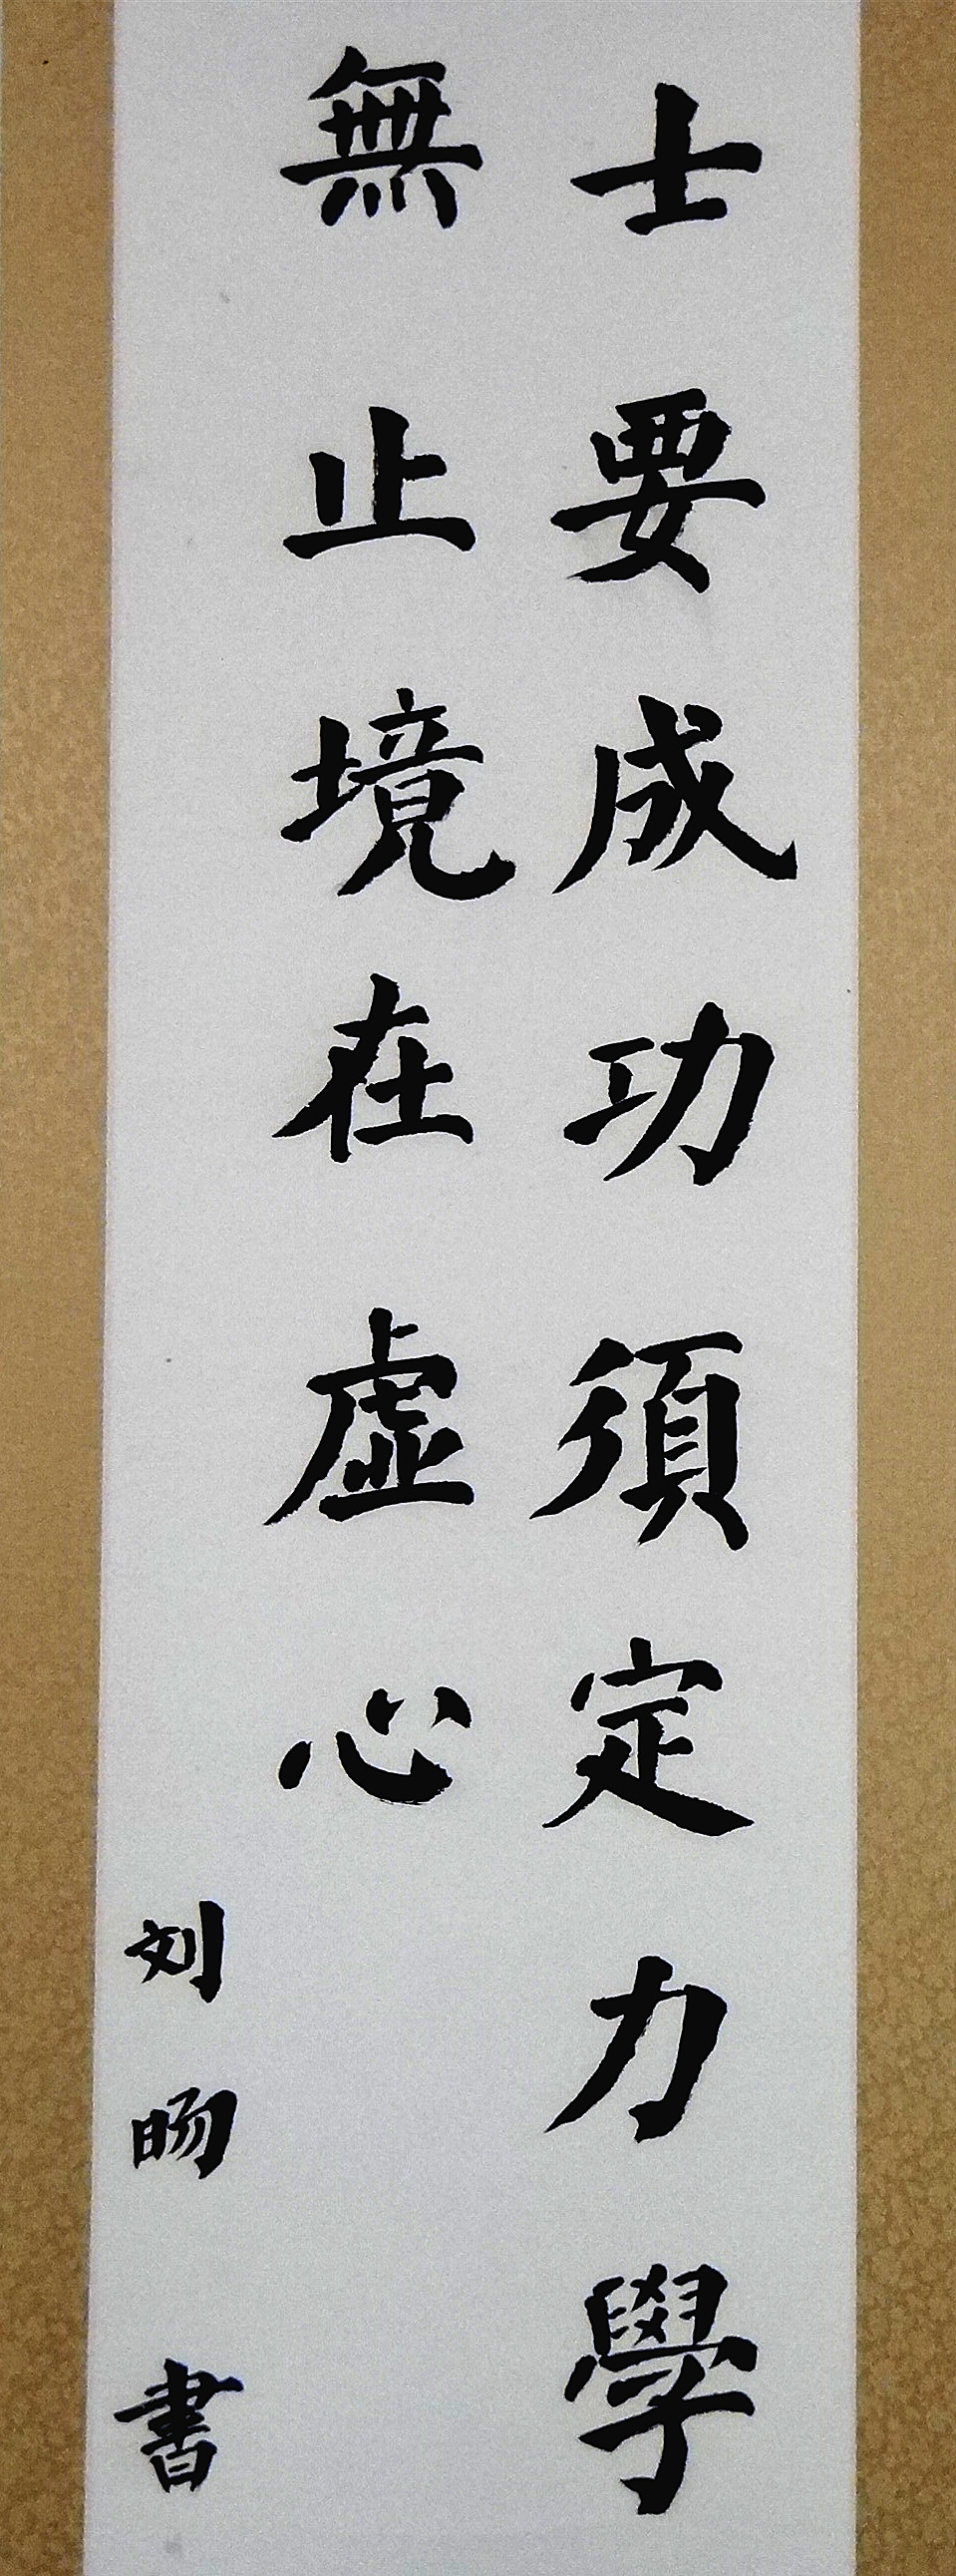 士要成功須定力學
無止境在虛心
刘旸書